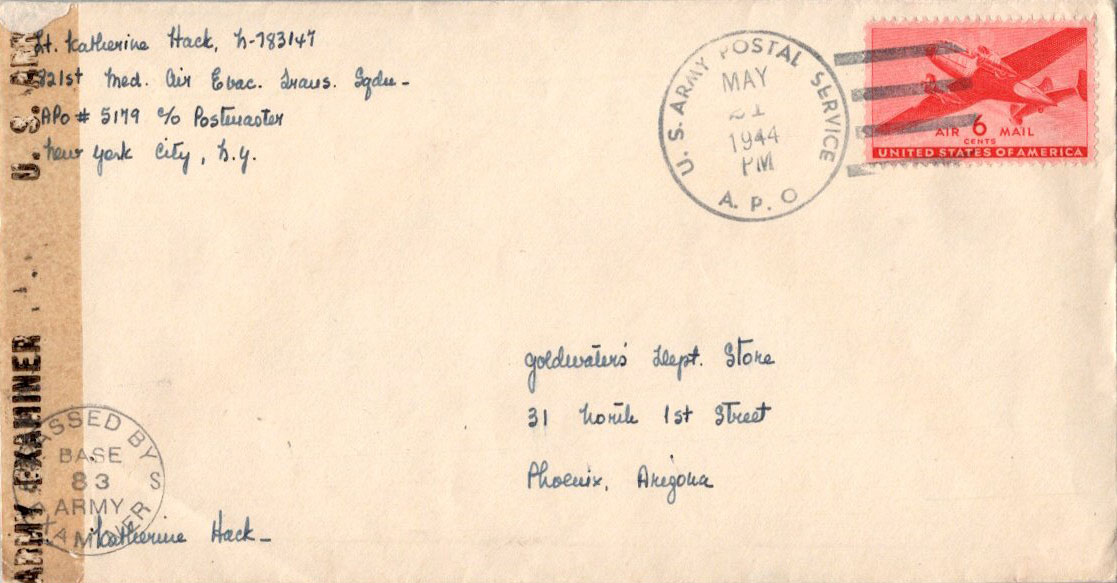 Lt. Katherine Hack, N-783147
821st Med. Air Evac. Trans. Sqdn-
APO # 5179 c/o Postmaster
New York City, N.Y.
U. S. ARMY POSTAL SERVICE
MAY
21
1944
PM
A. P. O
AIR 6 MAIL
CENTS
UNITED STATES OF AMERICA
Goldwaters' Dept. Store
31 North 1st Street
Phoenix, Arizona
U. S.
ARMY EXAMINER
PASSED BY
BASE
83
ARMY
EXAMINER
Katherine Hack-